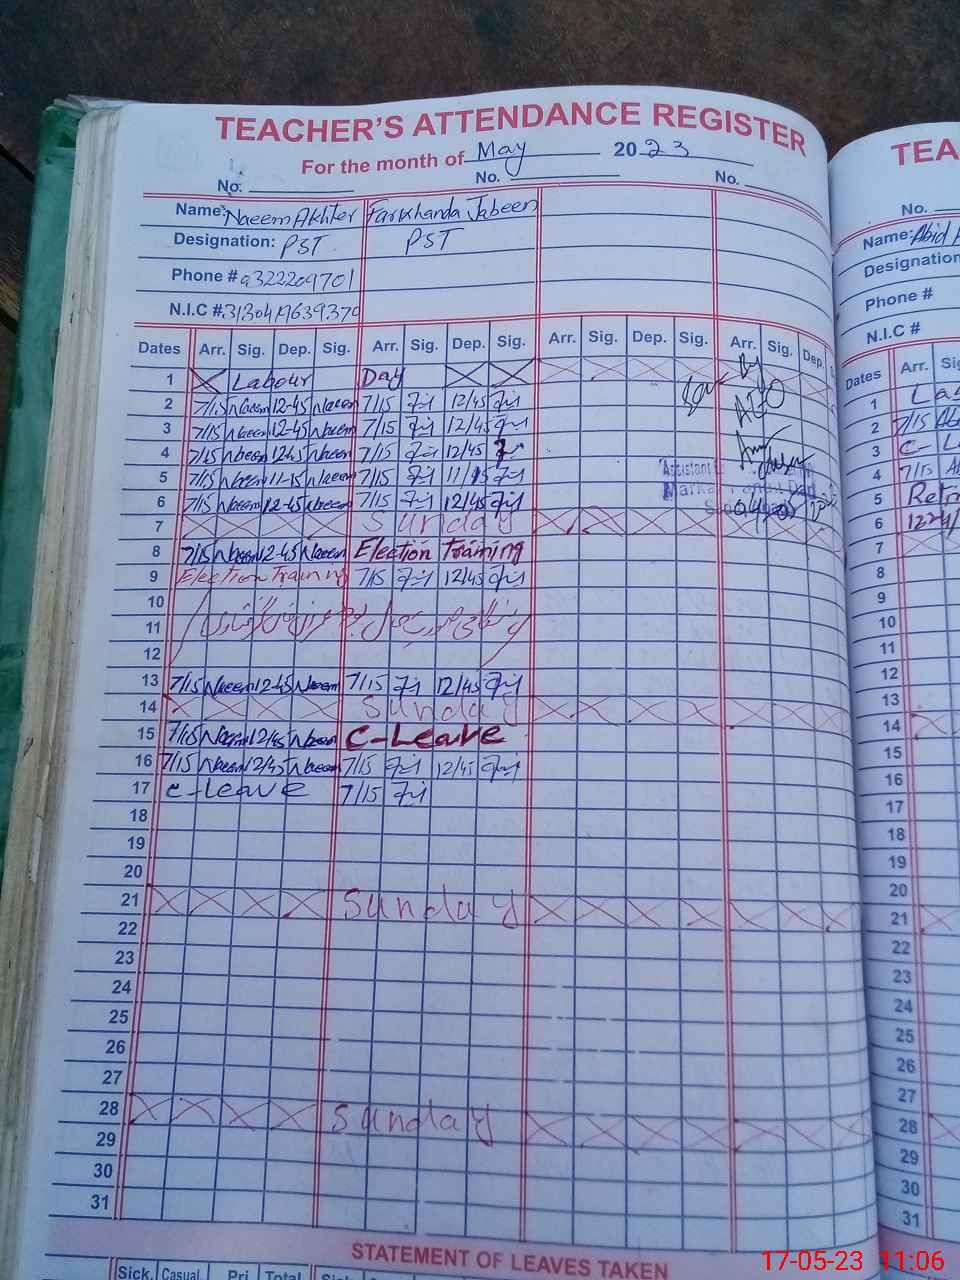 TEACHER'S ATTENDANCE REGISTER
For the month of May 2023
No. No. No.
Name: Naeem Akhter Farkhanda Jabeen
Designation: PST PST
Phone #
N.I.C #
Dates Arr. Sig. Dep. Sig. Arr. Sig. Dep. Sig. Arr. Sig. Dep. Sig. Arr. Sig. Dep.
1 Labour Day
2 7/15 Naeem 12-45 Naeem 7/15 12/45
3 7/15 Naeem 12-45 Naeem 7/15 12/45
4 7/15 Naeem 12-45 Naeem 7/15 12/45
5 7/15 Naeem 11-15 Naeem 7/15 11/15
6 7/15 Naeem 12-45 Naeem 7/15 12/45
7 Sunday
8 7/15 Naeem 12-45 Naeem Election Training
9 Election Training 7/15 12/45
10
11
12
13 7/15 Naeem 12-45 Naeem 7/15 12/45
14 Sunday
15 7/15 Naeem 12/45 Naeem C-Leave
16 7/15 Naeem 12/45 Naeem 7/15 12/45
17 C-Leave 7/15
18
19
20
21 Sunday
22
23
24
25
26
27
28 Sunday
29
30
31
STATEMENT OF LEAVES TAKEN
Sick. Casual Pri Total Sick.
AEO
Assistant
TEA
No.
Name: Abid
Designation
Phone #
N.I.C #
Dates Arr.
1
2 7/15
3 C-
4 7/15
5
6
7
8
9
10
11
12
13
14
15
16
17
18
19
20
21
22
23
24
25
26
27
28
29
30
31
17-05-23 11:06